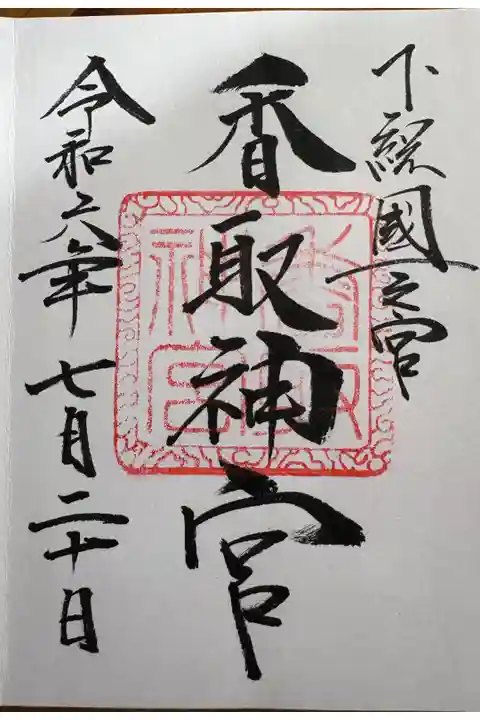 下総國一之宮
香取神宮
令和六年 七月二十日
香取
神宮